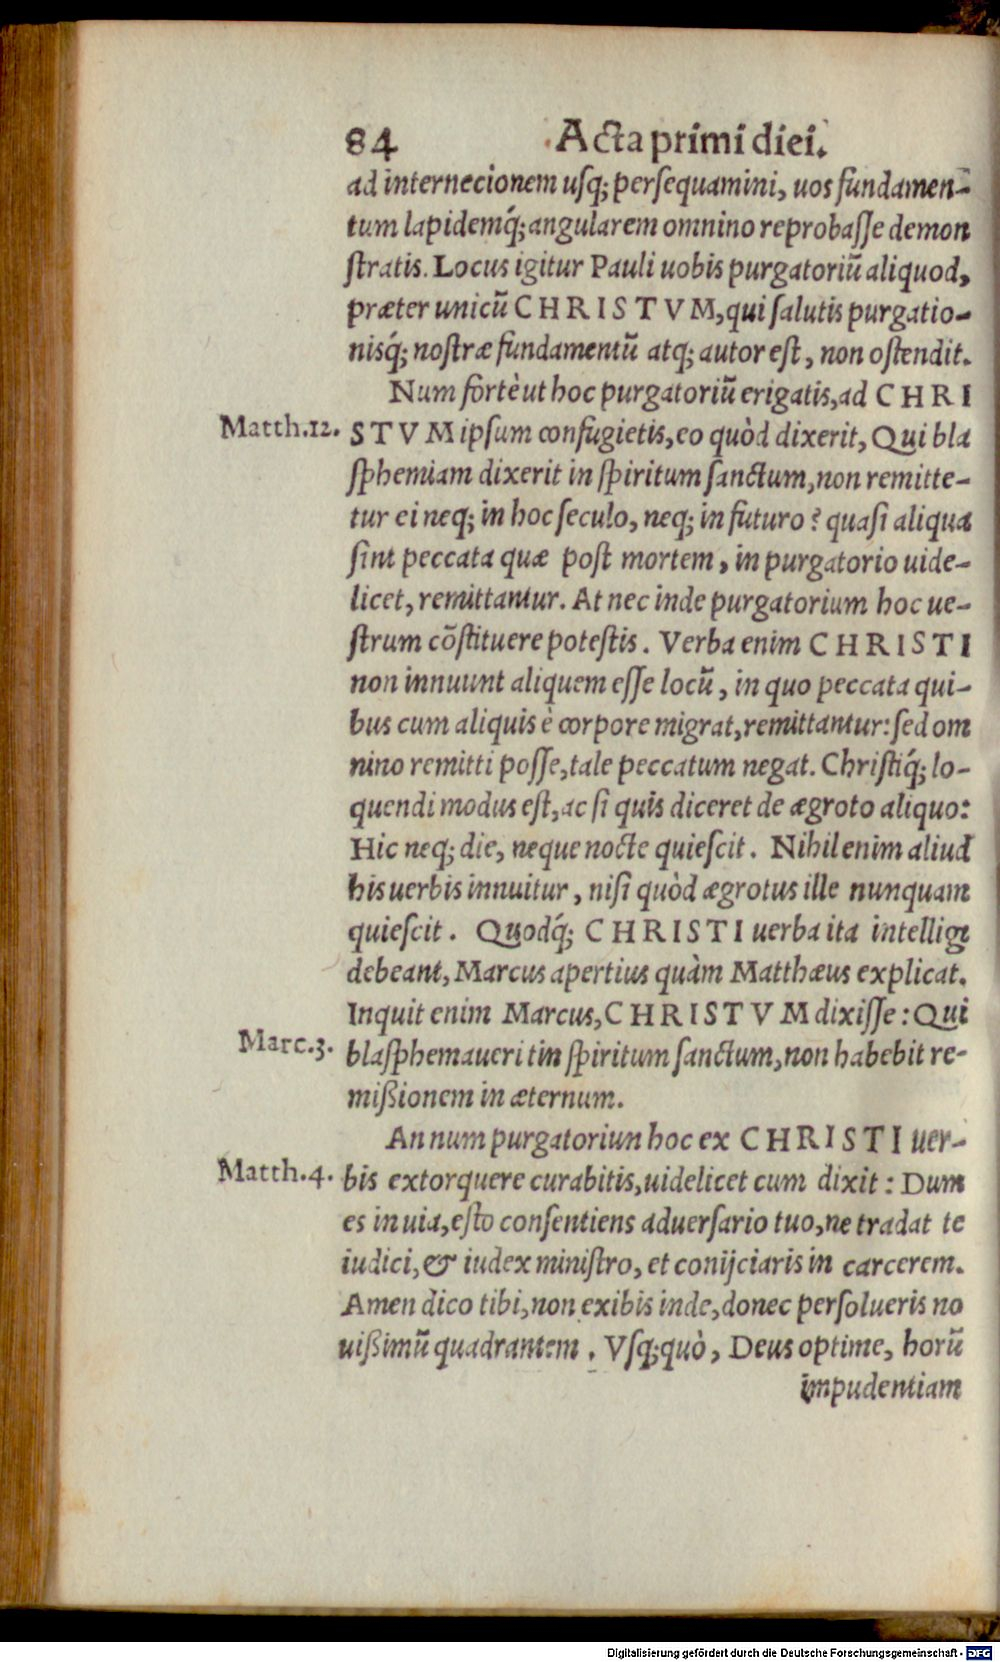 84 Acta primi diei.
ad internecionem usq; persequamini, uos fundamen-
tum lapidemq́; angularem omnino reprobasse demon
stratis. Locus igitur Pauli uobis purgatoriũ aliquod,
præter unicũ CHRISTVM, qui salutis purgatio-
nisq́; nostræ fundamentũ atq; autor est, non ostendit.
Num fortè ut hoc purgatoriũ erigatis, ad CHRI
Matth.12. STVM ipsum confugietis, eo quòd dixerit, Qui bla
sphemiam dixerit in spiritum sanctum, non remitte-
tur ei neq; in hoc seculo, neq; in futuro? quasi aliqua
sint peccata quæ post mortem, in purgatorio uide-
licet, remittantur. At nec inde purgatorium hoc ue-
strum cõstituere potestis. Verba enim CHRISTI
non innuunt aliquem esse locũ, in quo peccata qui-
bus cum aliquis è corpore migrat, remittantur: sed om
nino remitti posse, tale peccatum negat. Christiq́; lo-
quendi modus est, ac si quis diceret de ægroto aliquo:
Hic neq; die, neque nocte quiescit. Nihil enim aliud
his uerbis innuitur, nisi quòd ægrotus ille nunquam
quiescit. Quodq́; CHRISTI uerba ita intelligi
debeant, Marcus apertius quàm Matthæus explicat.
Inquit enim Marcus, CHRISTVM dixisse: Qui
Marc.3. blasphemauerit in spiritum sanctum, non habebit re-
mißionem in æternum.
An num purgatoriun hoc ex CHRISTI uer-
Matth.4. bis extorquere curabitis, uidelicet cum dixit: Dum
es in uia, esto consentiens aduersario tuo, ne tradat te
iudici, & iudex ministro, et conijciaris in carcerem.
Amen dico tibi, non exibis inde, donec persolueris no
uißimũ quadrantem. Vsq;quò, Deus optime, horũ
impudentiam
Digitalisierung gefördert durch die Deutsche Forschungsgemeinschaft - DFG